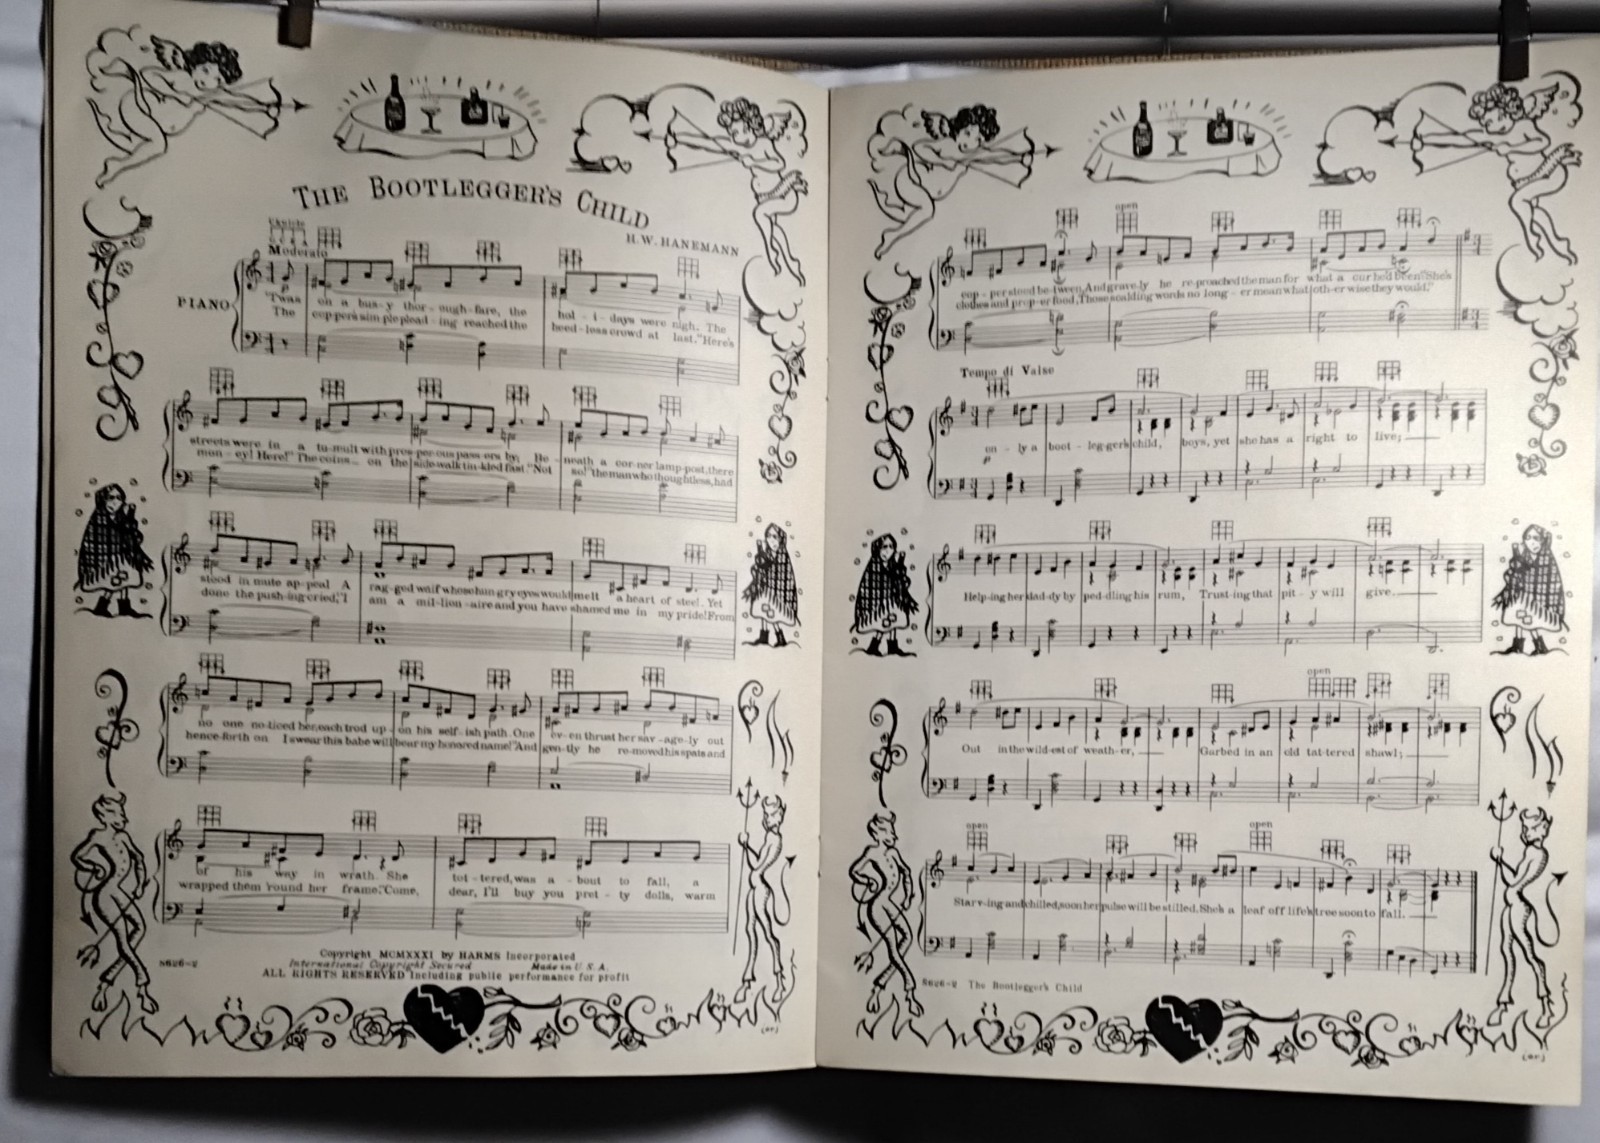 THE BOOTLEGGER'S CHILD
H. W. HANEMANN
Ukulele
Moderato
PIANO
p
'Twas on a bus-y thor-ough-fare, the hol-i-days were nigh. The
The cop-per's sim-ple plead-ing reached the heed-less crowd at last. "Here's
streets were in a tu-mult with pros-per-ous pass-ers by; Be-neath a cor-ner lamp-post, there
mon-ey! Here!" The coins on the side-walk tin-kled fast. "Not so!" the man who thoughtless, had
stood in mute ap-peal A rag-ged waif whose hun-gry eyes would melt a heart of steel. Yet
done the push-ing cried, "I am a mil-lion-aire and you have shamed me in my pride! From
no one no-ticed her, each trod up-on his self-ish path. One ev-en thrust her sav-age-ly out
hence-forth on I swear this babe will bear my honored name!" And gen-tly he re-moved his spats and
of his way in wrath. She tot-tered, was a-bout to fall, a
wrapped them 'round her frame. "Come, dear, I'll buy you pret-ty dolls, warm
8626-2
Copyright MCMXXXI by HARMS Incorporated
International Copyright Secured Made in U.S.A.
ALL RIGHTS RESERVED Including public performance for profit
open
cop-per stood be-tween, And grave-ly he re-proached the man for what a cur he'd been: "She's
clothes and prop-er food, Those scalding words no long-er mean what oth-er wise they would."
Tempo di Valse
on-ly a boot-leg-ger's child, boys, yet she has a right to live;
p
Help-ing her dad-dy by ped-dling his rum, Trust-ing that pit-y will give.
open
Out in the wild-est of weath-er, Garbed in an old tat-tered shawl;
open open
Starv-ing and chilled, soon her pulse will be stilled. She's a leaf off life's tree soon to fall.
8626-2 The Bootlegger's Child